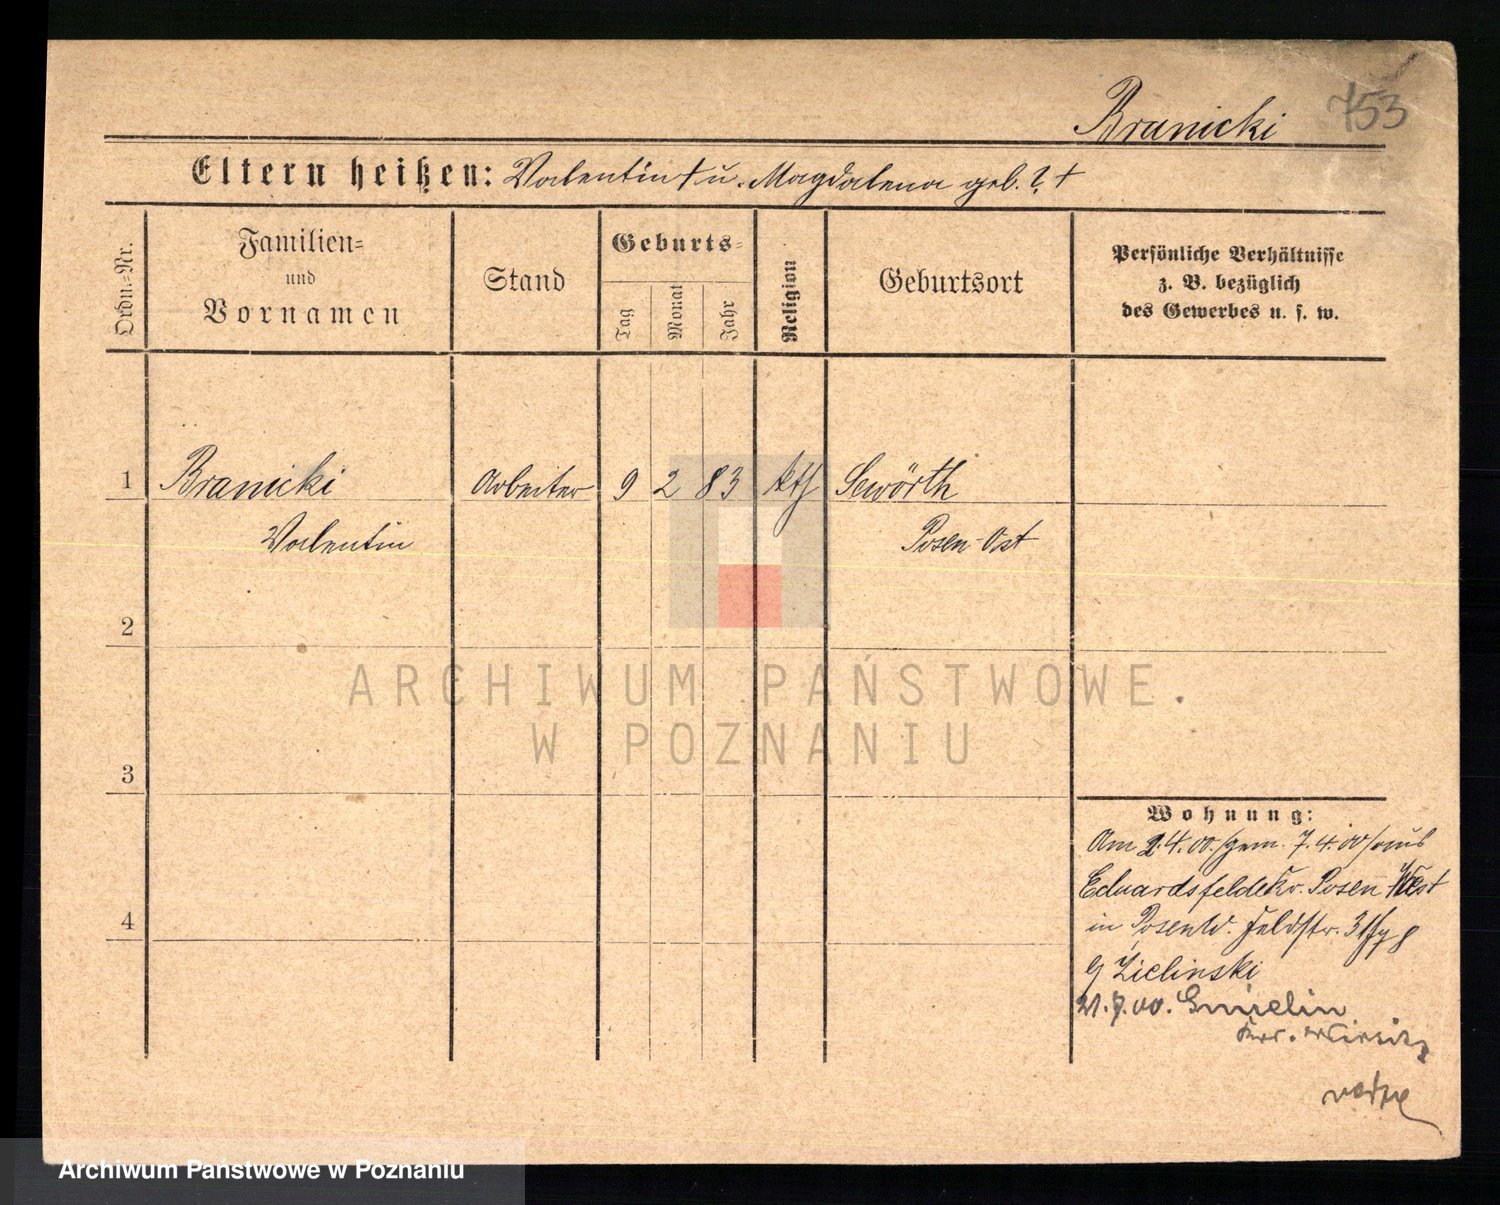 Branicki 753
Eltern heißen: Valentin † u. Magdalena geb. ? †
Ordn.=Nr.
Familien=
und
Vornamen
Stand
Geburts=
Tag
Monat
Jahr
Religion
Geburtsort
Persönliche Verhältnisse
z. B. bezüglich
des Gewerbes u. s. w.
1 Branicki Arbeiter 9 2 83 kth Sewörth
Valentin Posen-Ost
2
ARCHIWUM PAŃSTWOWE
W POZNANIU
3
Wohnung:
Am 2.4.00./gem. 7.4.00/aus
Eduardsfelde Kr. Posen West
in Posen W. Feldstr. 31
b/ Zielinski
21.7.00.
Kr. Wirsitz
4
Archiwum Państwowe w Poznaniu